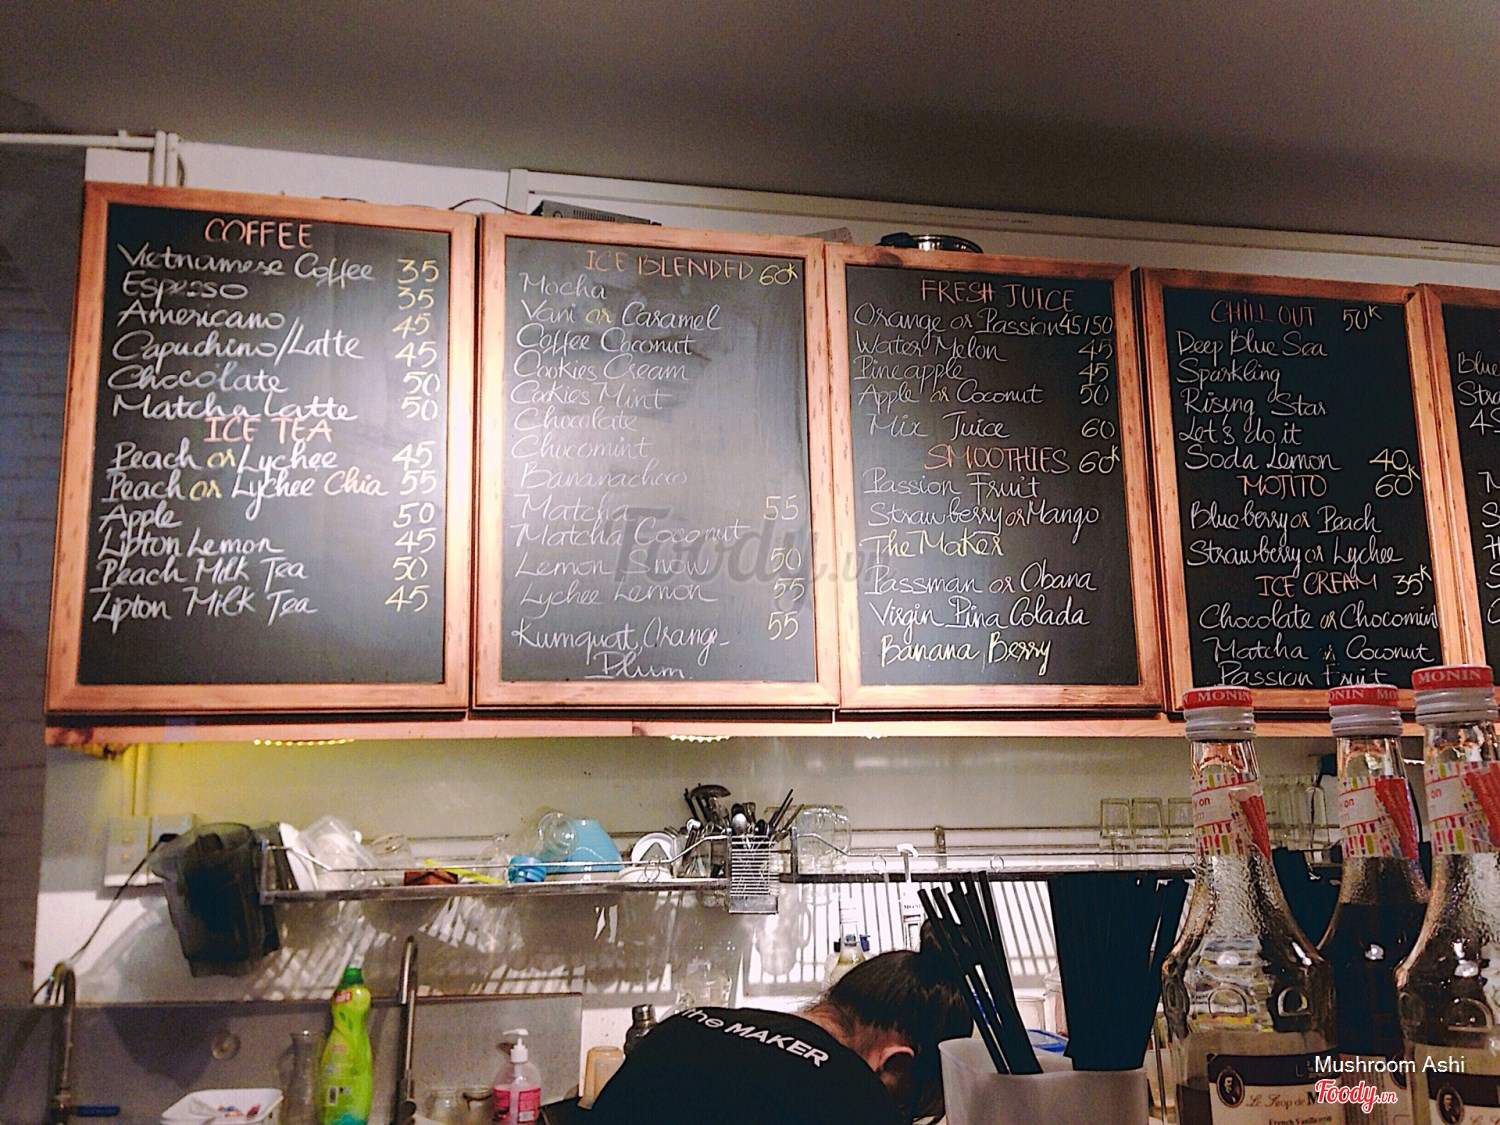 COFFEE
Vietnamese Coffee 35
Espresso 35
Americano 45
Capuchino/Latte 45
Chocolate 50
Matcha Latte 50
ICE TEA
Peach or Lychee 45
Peach or Lychee Chia 55
Apple 50
Lipton Lemon 45
Peach Milk Tea 50
Lipton Milk Tea 45
ICE BLENDED 60K
Mocha
Vani or Caramel
Coffee Coconut
Cookies Cream
Cookies Mint
Chocolate
Chocomint
Bananachoco
Matcha 55
Matcha Coconut
Lemon Snow 50
Lychee Lemon 55
Kumquat, Orange- 55
Plum
FRESH JUICE
Orange or Passion 45/50
Water Melon 45
Pineapple 45
Apple or Coconut 50
Mix Juice 60
SMOOTHIES 60K
Passion Fruit
Strawberry or Mango
The Maker
Passman or Obana
Virgin Pina Colada
Banana, Berry
CHILL OUT 50K
Deep Blue Sea
Sparkling
Rising Star
Let's do it
Soda Lemon 40
MOJITO 60K
Blueberry or Peach
Strawberry or Lychee
ICE CREAM 35K
Chocolate or Chocomint
Matcha Coconut
Passion Fruit
Blue
Stra
MONIN
MONIN
MONIN
The MAKER
Le Sirop de
Foody.vn
Mushroom Ashi
Foody.vn